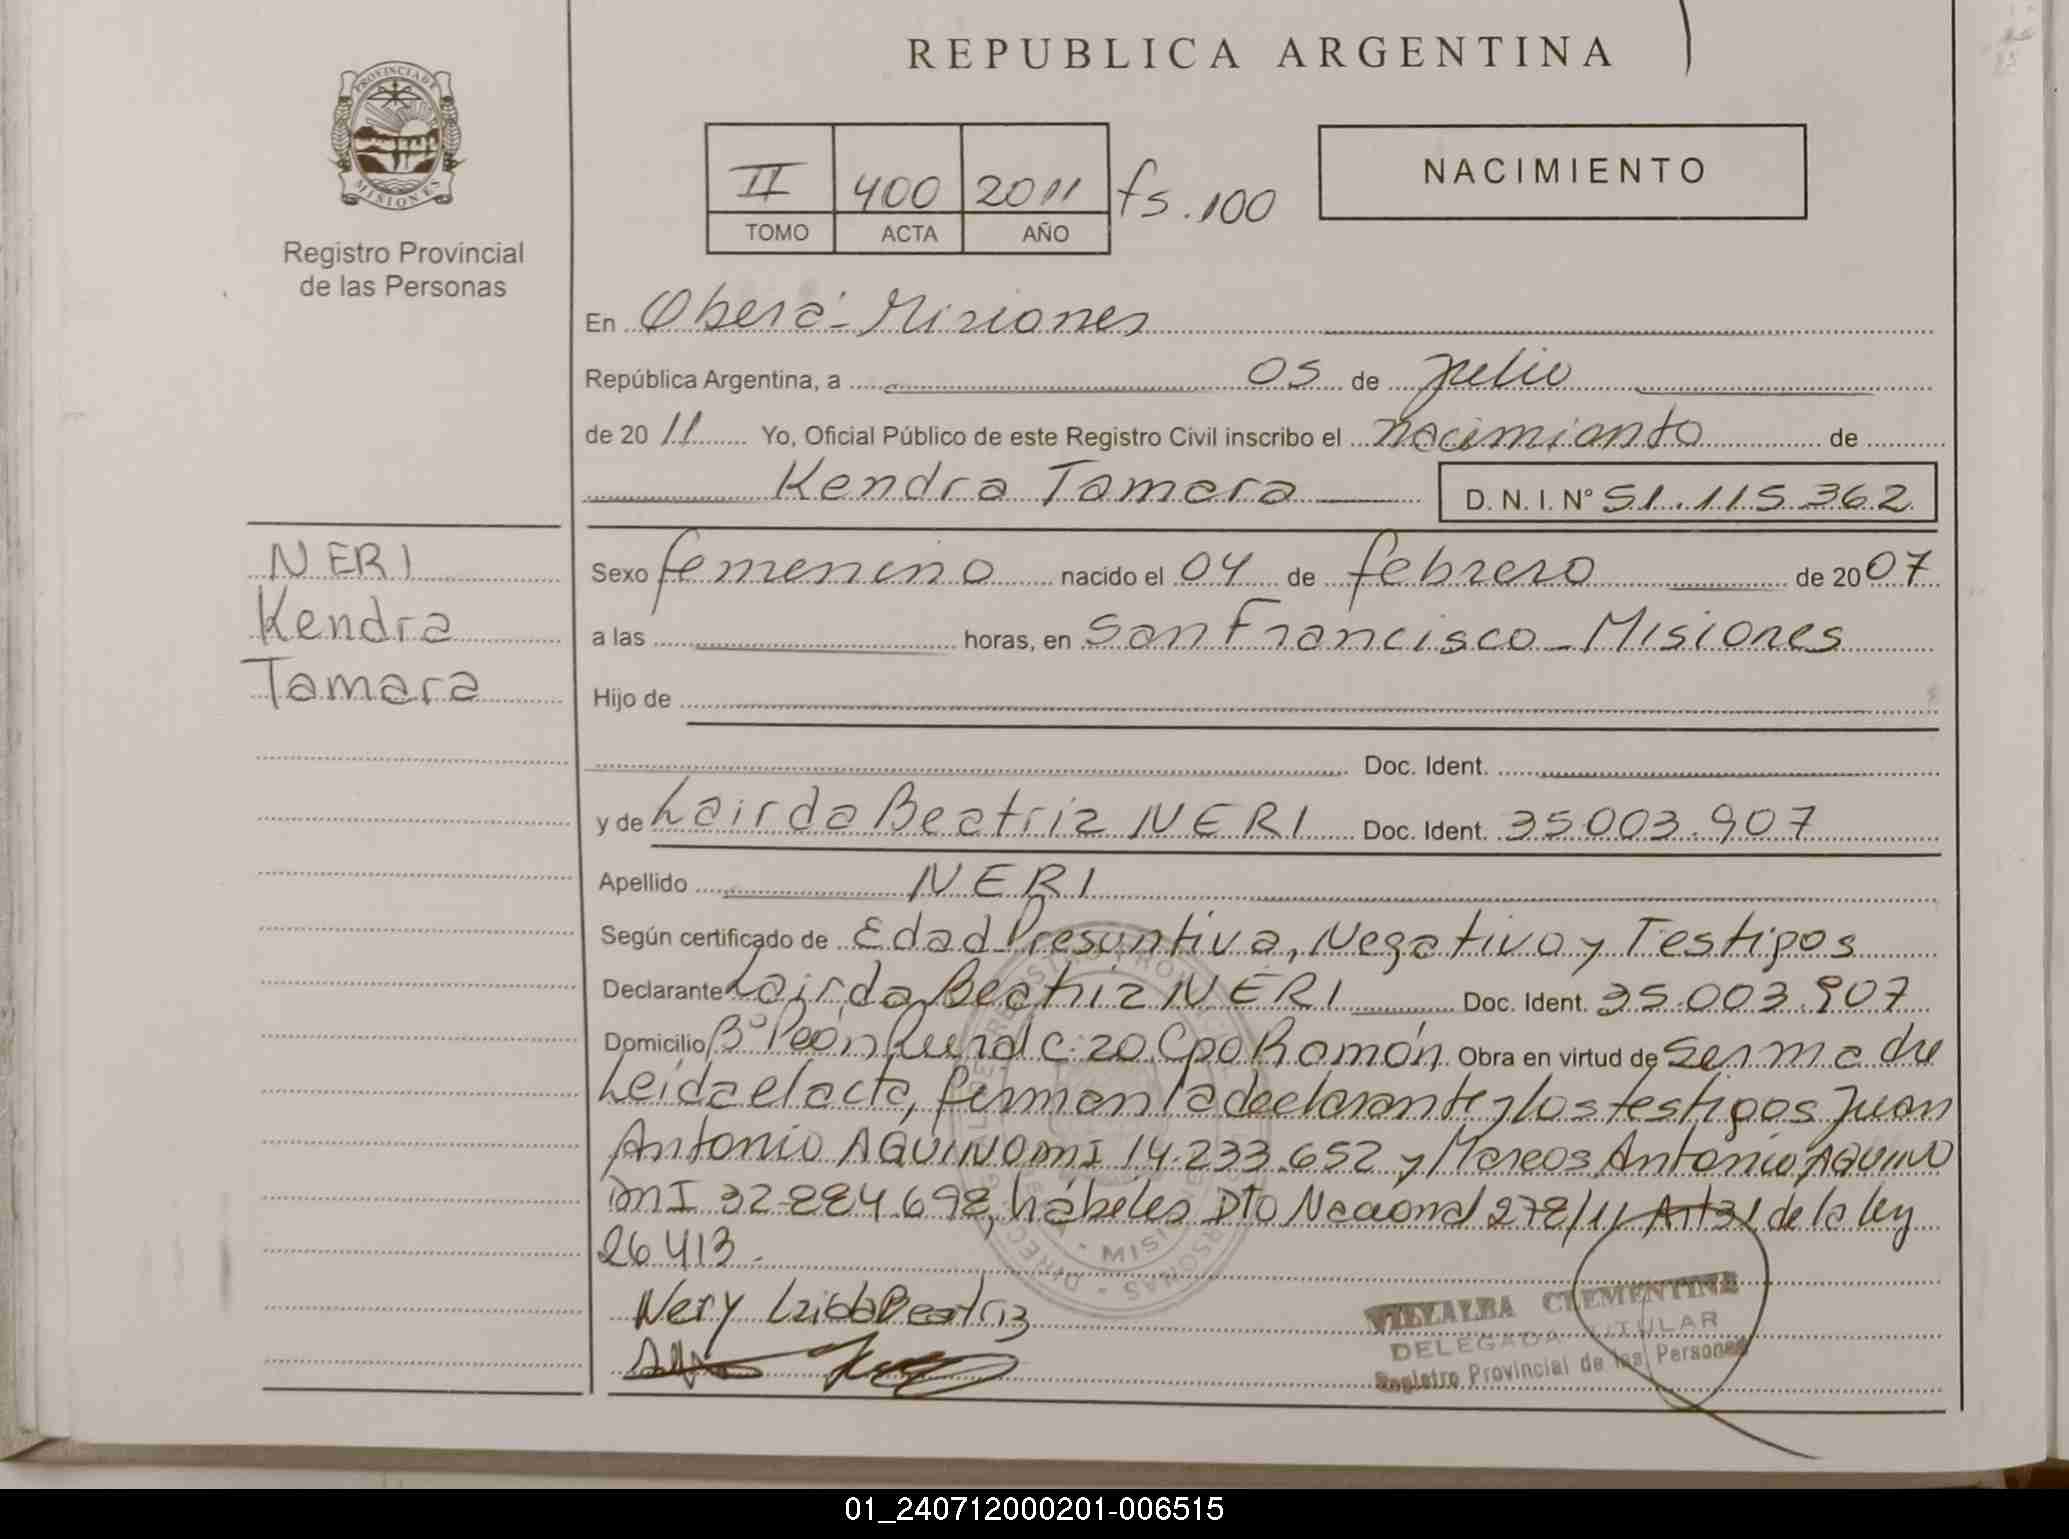 REPUBLICA ARGENTINA
PROVINCIA DE
MISIONES
Registro Provincial
de las Personas
II 400 2011 fs. 100
TOMO ACTA AÑO
NACIMIENTO
En Oberá - Misiones
República Argentina, a 05 de julio
de 20 11 Yo, Oficial Público de este Registro Civil inscribo el nacimiento de
Kendra Tamara D. N. I. N° 51.115.362
NERI
Kendra
Tamara
Sexo femenino nacido el 04 de febrero de 20 07
a las horas, en San Francisco - Misiones
Hijo de
Doc. Ident.
y de Lairda Beatriz NERI Doc. Ident. 35003.907
Apellido NERI
Según certificado de Edad Presuntiva, Negativo y Testigos
Declarante Lairda Beatriz NERI Doc. Ident. 35.003.907
Domicilio B° Peón Rural C: 20 Cpo Ramón Obra en virtud de ser madre
Leida el acta, firman la declarante y los testigos Juan
Antonio AQUINO MI 14.233.652 y Marcos Antonio AQUINO
DNI 32.884.698, hábiles Dto Nacional 278/11 Art 31 de la ley
26.413.
Nery Laida Beatriz
VILLALBA CLEMENTINE
DELEGADA TITULAR
Registro Provincial de las Personas
01_240712000201-006515